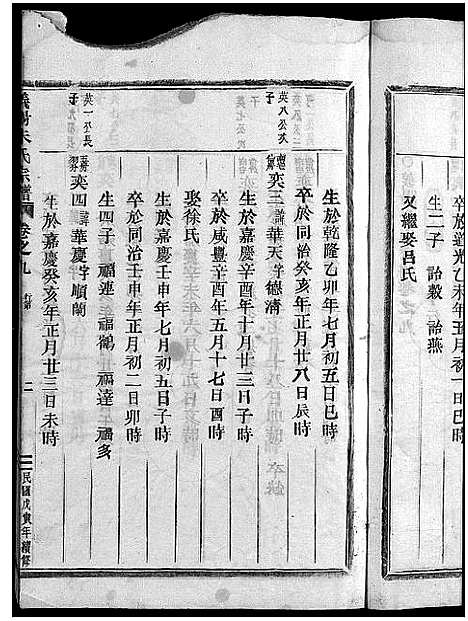 卒於道光乙未年五月初一日巳時
生二子 詒穀 詒燕
又繼娶呂氏
英八公次子
奕三 諱華天 字德清
生於乾隆乙卯年七月初五日巳時
卒於同治癸亥年正月廿八日辰時
娶徐氏
生於嘉慶辛酉年十月廿三日子時
卒於咸豐辛酉年五月十七日酉時
英一公長子
奕四 諱華慶 字順蘭
生於嘉慶壬申年七月初五日子時
卒於同治壬申年正月初二日卯時
生四子 福連 福鶴 福達 福多
生於嘉慶癸亥年正月廿三日未時
朱氏宗譜 卷之九 行第 二 民國戊寅年續修